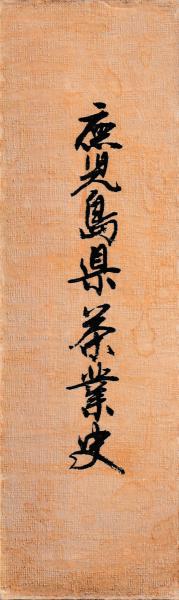 鹿児島県茶業史